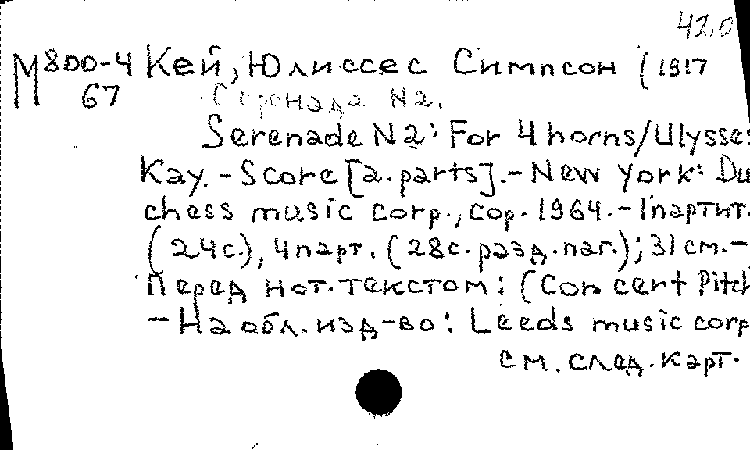 42.0
М800-4 Кей, Юлиссес Симпсон (1917
67 Серенада N2.
Serenade N2: For 4 horns/Ulysses
Kay. - Score [a. parts]. - New York: Du
chess music corp., cop. 1964. - 1партит.
(24с.), 4парт. (28с. разд. паг.); 31см. -
Перед нот. текстом: (Concert Pitch
- На обл. изд-во: Leeds music corp
см. след. карт.